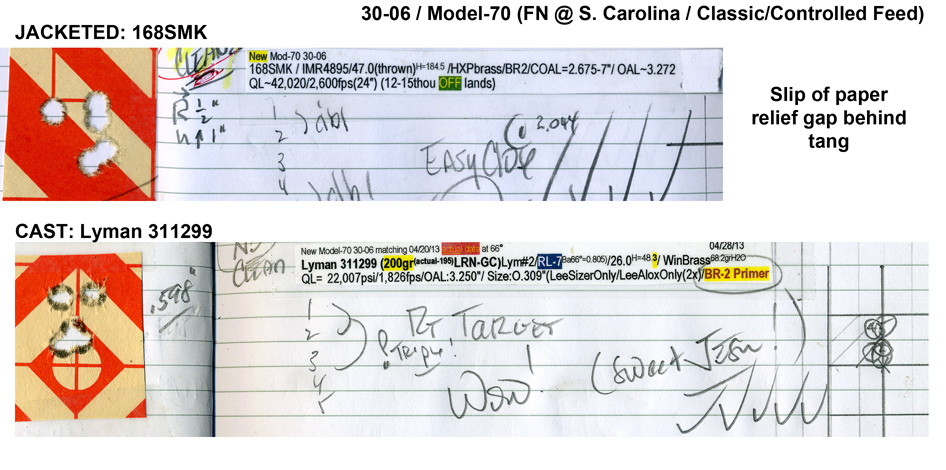 30-06 / Model-70 (FN @ S. Carolina / Classic/Controlled Feed)
JACKETED: 168SMK
CLEAN
New Mod-70 30-06
168SMK / IMR4895/47.0(thrown)H=184.5 /HXPbrass/BR2/COAL=2.675-7"/ OAL~3.272
QL~42,020/2,600fps(24") (12-15thou OFF lands)
R 1/2"
1"
1
2
3
4
dbl
2.044
EASY Close
dbl
Slip of paper
relief gap behind
tang
CAST: Lyman 311299
CLEAN
New Model-70 30-06 matching 04/20/13 actual data at 66°
04/28/13
Lyman 311299 (200gr(actual-195)LRN-GC)Lym#2/RL-7Ba66°=0.805)/26.0H=48.3/ WinBrass68.2grH2O
QL= 22,007psi/1,826fps/OAL:3.250"/ Size:O.309"(LeeSizerOnly/LeeAloxOnly(2x)/BR-2 Primer
.598"
1
2
3
4
5
RT TARGET
! TRIPLE !
WOW!
(SWEET JESU!